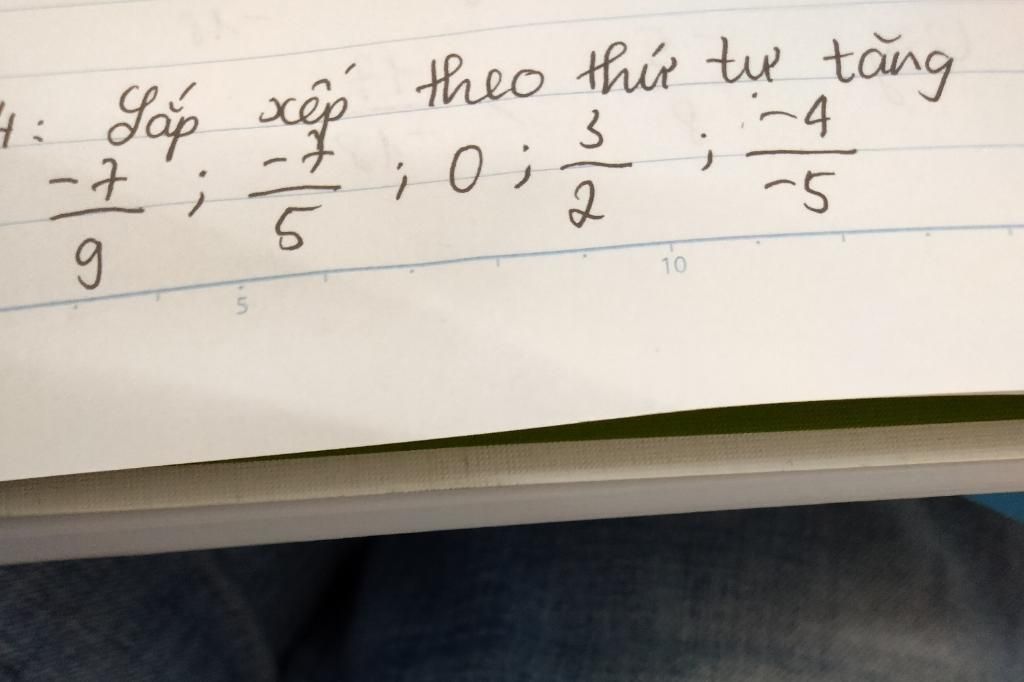 4: Sắp xếp theo thứ tự tăng
-7/9 ; -7/5 ; 0 ; 3/2 ; -4/-5
5 10